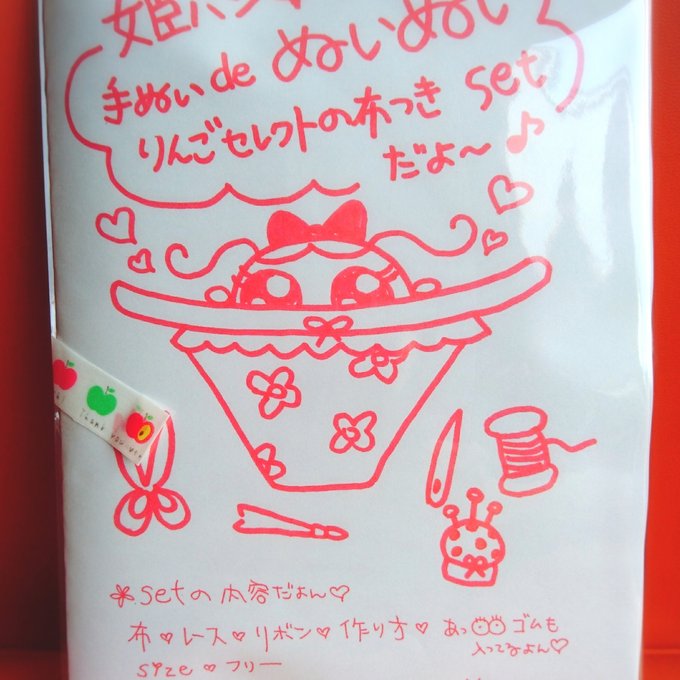 姫パン
ぬいぬい
手ぬい de
set
りんごセレクトの布つき
だよ〜♪
Thank you
✽setの内容だよん♡
布♡レース♡リボン♡作り方♡あっ ゴムも
入ってるよん♡
size♡フリー